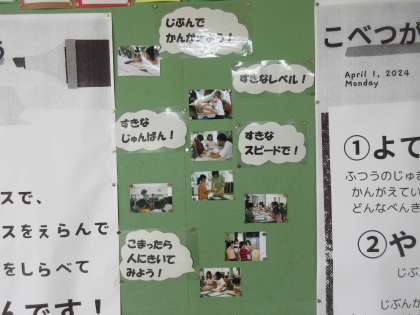 じぶんで
かんがえよう！
すきなレベル！
すきな
じゅんばん！
すきな
スピードで！
こまったら
人にきいて
みよう！
う
スで、
スをえらんで
をしらべて
んです！
こべつが
April 1, 2024
Monday
①よて
ふつうのじゅ
かんがえてい
どんなべんき
②や
じぶ
じぶんか